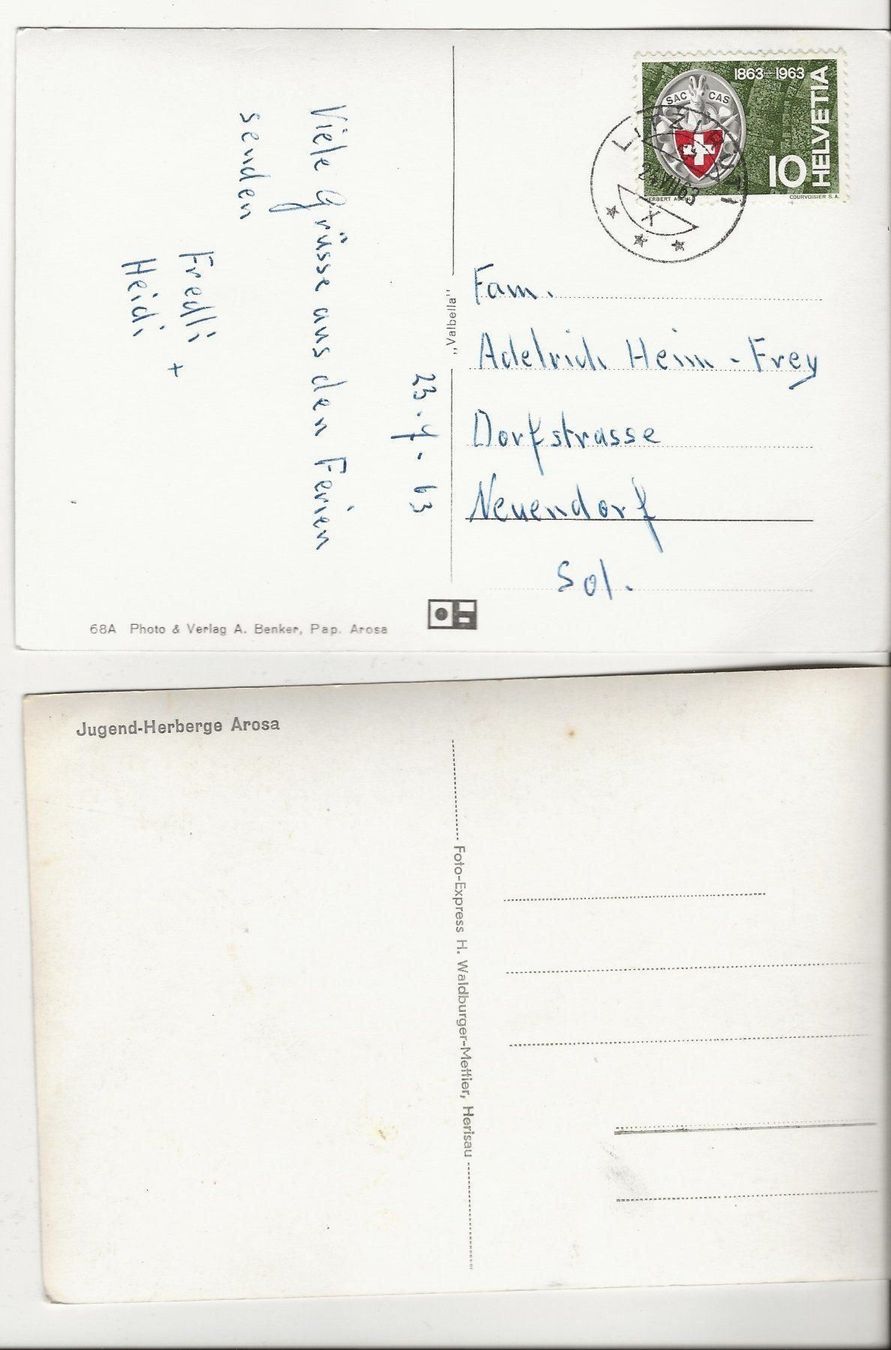 1863–1963
SAC CAS
HELVETIA
10
COURVOISIER S. A.
23.VII.63
X
Viele Grüsse aus den Ferien
senden
Fredli +
Heidi
23.7.63
„Valbella"
Fam.
Adelrich Heim-Frey
Dorfstrasse
Neuendorf
Sol.
68A Photo & Verlag A. Benker, Pap. Arosa
Jugend-Herberge Arosa
Foto-Express H. Waldburger-Mettier, Herisau